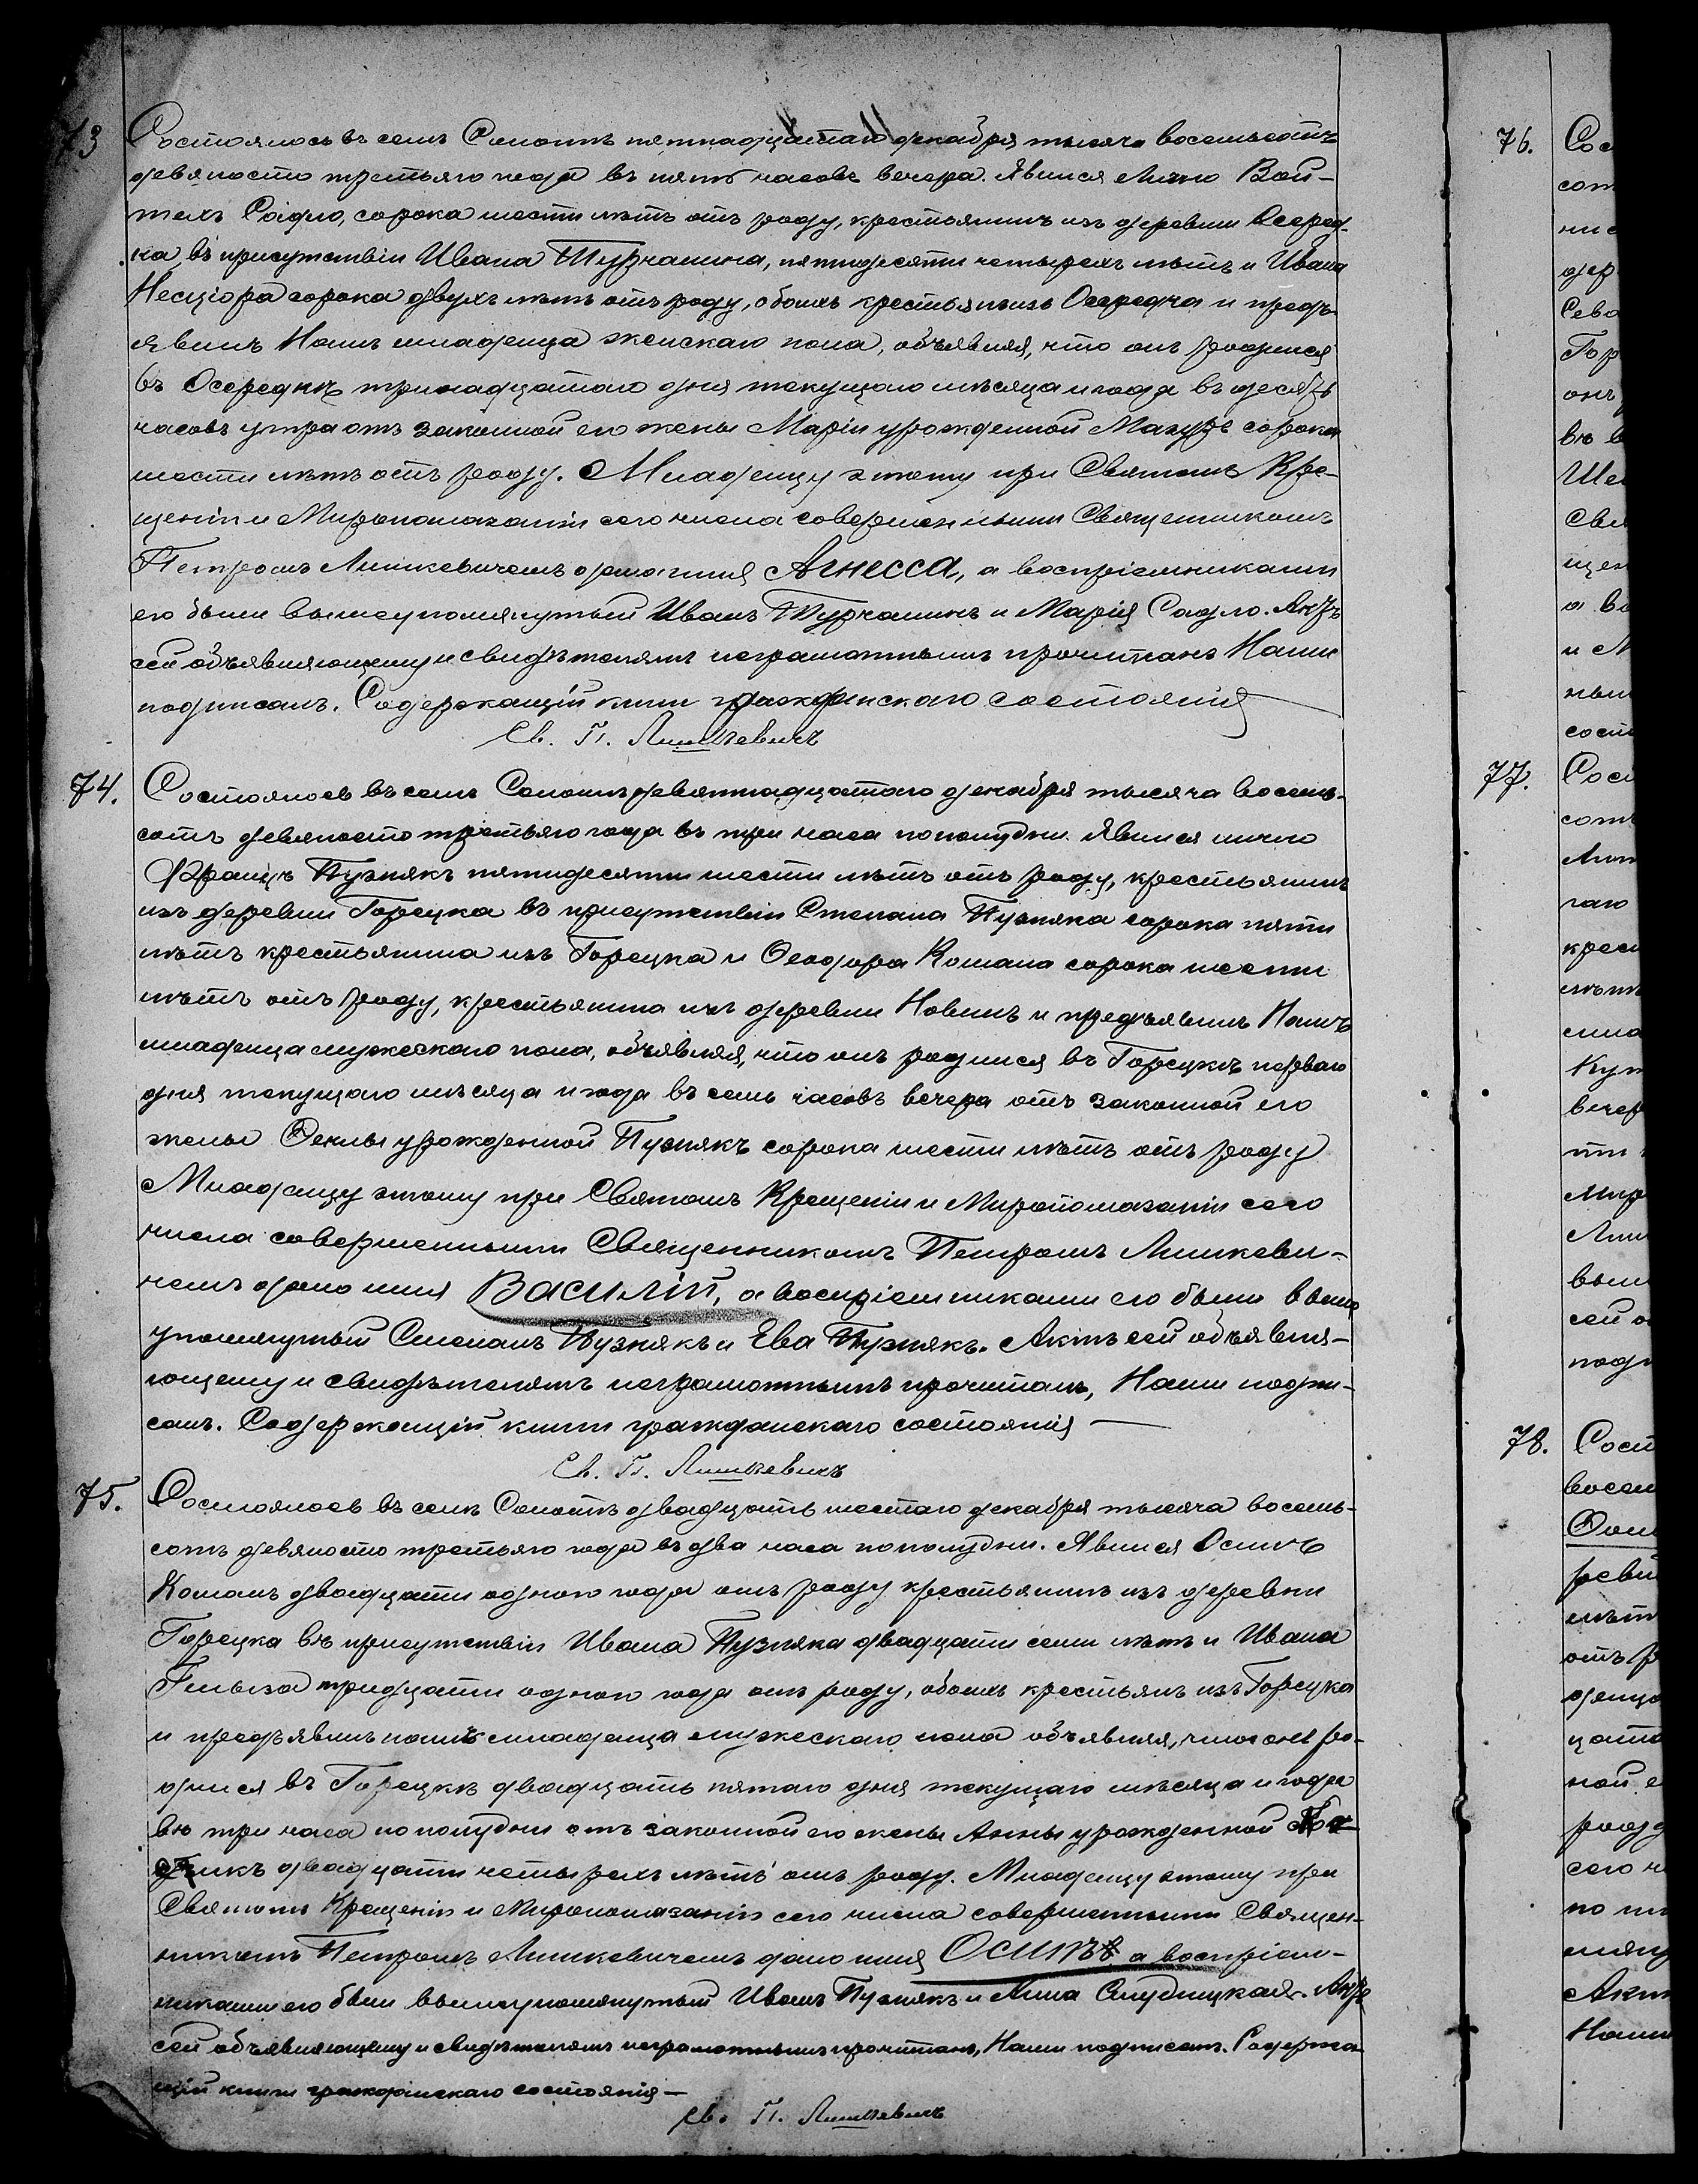 73 Состоялось въ селѣ Сопотѣ пятнадцатаго декабря тысяча восемьсотъ
девяносто третьяго года въ пять часовъ вечера. Явился лично Вой-
техъ Садло, сорока шести лѣтъ отъ роду, крестьянинъ изъ деревни Осеред-
ка въ присутствіи Ивана Турчанина, пятидесяти четырехъ лѣтъ и Ивана
Несціора сорока двухъ лѣтъ отъ роду, обоихъ крестьянъ изъ Осередка и предъ-
явилъ Намъ младенца женскаго пола, объявляя, что онъ родился
въ Осередкѣ тринадцатаго дня текущаго мѣсяца и года въ десять
часовъ утра отъ законной его жены Маріи урожденной Мазуръ сорока
шести лѣтъ отъ роду. Младенцу этому при Святомъ Кре-
щеніи и Миропомазаніи сего числа совершенными Священникомъ
Петромъ Лишкевичемъ дано имя Агнесса, а воспріемниками
его были вышеупомянутый Иванъ Турчанинъ и Марія Садло. Актъ
сей объявляющему и свидѣтелямъ неграмотнымъ прочитанъ Нами
подписанъ. Содержащій книги гражданскаго состоянія
Св. П. Лишкевичъ
74. Состоялось въ селѣ Сопотѣ девятнадцатаго декабря тысяча восемь-
сотъ девяносто третьяго года въ три часа пополудни. Явился лично
Францъ Пузнякъ пятидесяти шести лѣтъ отъ роду, крестьянинъ
изъ деревни Горецка въ присутствіи Степана Пузняка сорока пяти
лѣтъ крестьянина изъ Горецка и Ѳеодора Комана сорока шести
лѣтъ отъ роду, крестьянина изъ деревни Новинъ и предъявилъ Намъ
младенца мужескаго пола, объявляя, что онъ родился въ Горецкѣ перваго
дня текущаго мѣсяца и года въ семь часовъ вечера отъ законной его
жены Ѳеклы урожденной Пузнякъ сорока шести лѣтъ отъ роду
Младенцу этому при Святомъ Крещеніи и Миропомазаніи сего
числа совершенными Священникомъ Петромъ Лишкеви-
чемъ дано имя Василій, а воспріемниками его были выше
упомянутый Степанъ Пузнякъ и Ева Пузнякъ. Актъ сей объявля-
ющему и свидѣтелямъ неграмотнымъ прочитанъ, Нами подпи-
санъ. Содержащій книги гражданскаго состоянія
Св. П. Лишкевичъ
75. Состоялось въ селѣ Сопотѣ двадцать шестаго декабря тысяча восемь-
сотъ девяносто третьяго года въ два часа пополудни. Явился Осипъ
Команъ двадцати одного года отъ роду крестьянинъ изъ деревни
Горецка въ присутствіи Ивана Пузняка двадцати семи лѣтъ и Ивана
тридцати одного года отъ роду, обоихъ крестьянъ изъ Горецка
и предъявилъ намъ младенца мужескаго пола объявляя, что онъ ро-
дился въ Горецкѣ двадцать пятаго дня текущаго мѣсяца и года
въ три часа пополудни отъ законной его жены Анны урожденной
двадцати четырехъ лѣтъ отъ роду. Младенцу этому при
Святомъ Крещеніи и Миропомазаніи сего числа совершенными Священ-
никомъ Петромъ Лишкевичемъ дано имя Осипъ а воспріем-
никами его были вышеупомянутый Иванъ Пузнякъ и Анна Слудницкая. Актъ
сей объявляющему и свидѣтелямъ неграмотнымъ прочитанъ, Нами подписанъ. Содержа-
щій книги гражданскаго состоянія
Св. П. Лишкевичъ
76.
77.
78.